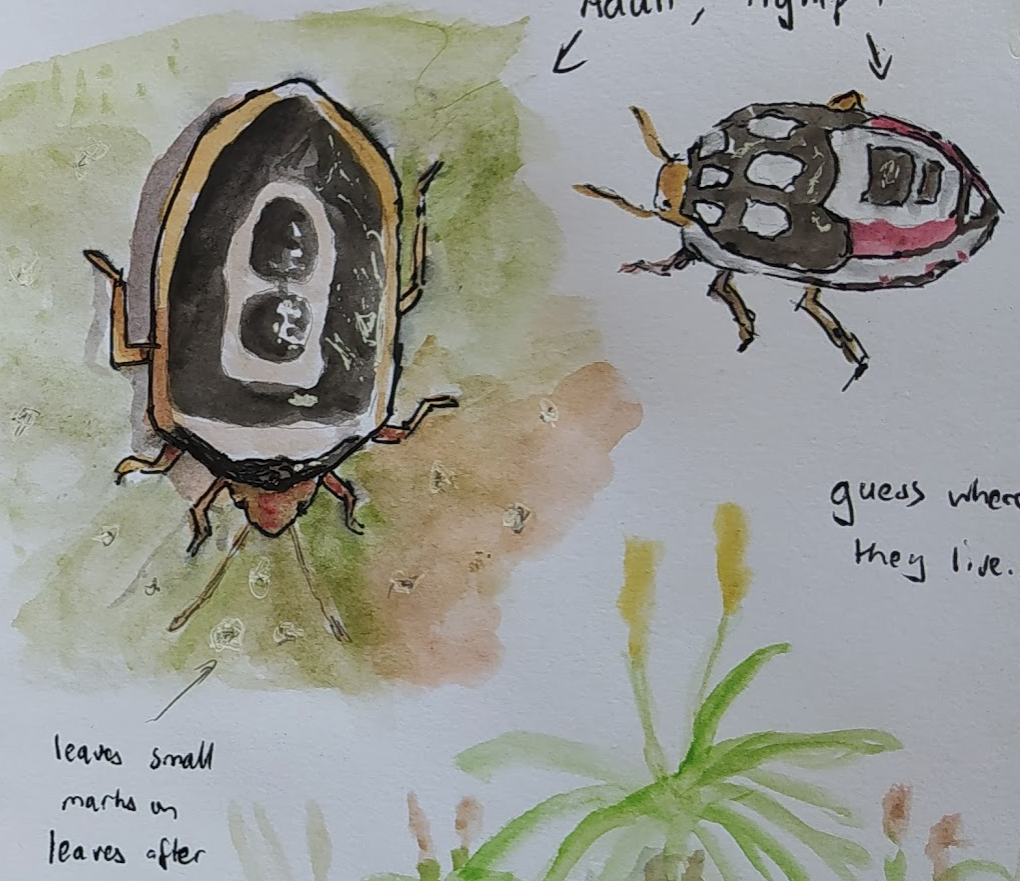 Adult, nymph
guess where
they live.
leaves small
marks on
leaves after